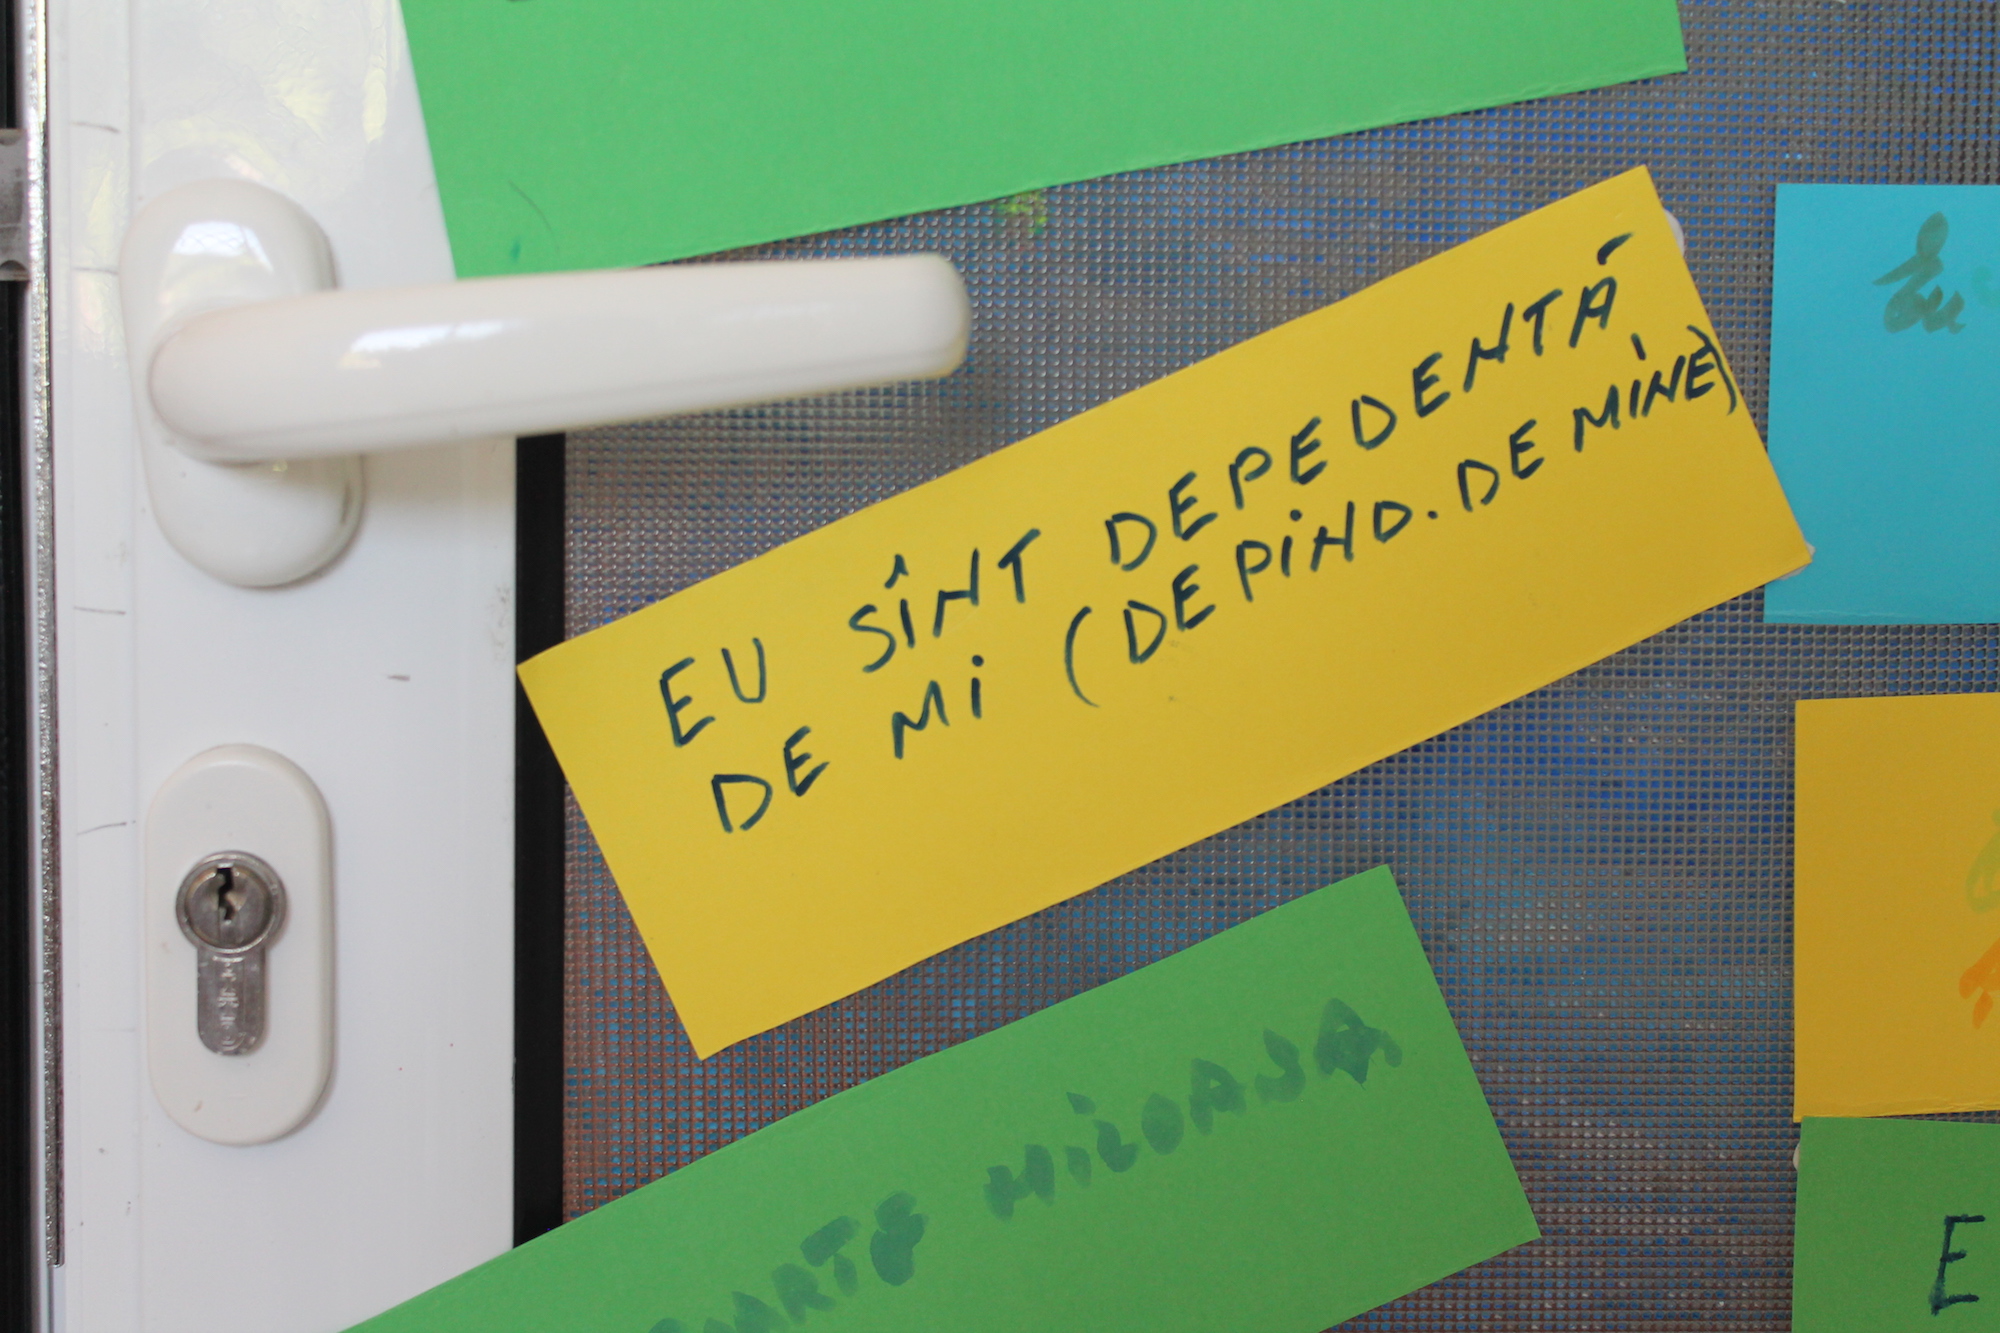 EU SÎNT DEPEDENTĂ
DE MI (DEPIND. DE MINE)
Eu
MILOASA
E